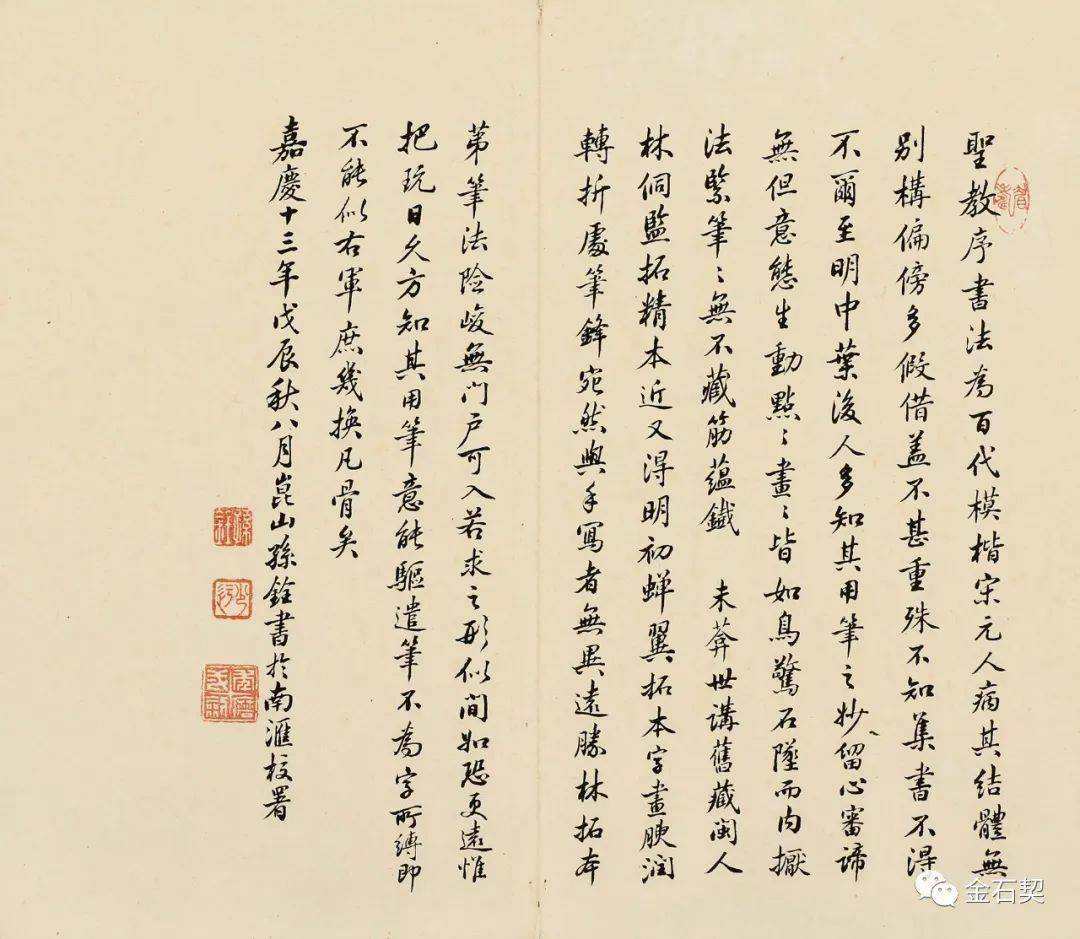 聖教序書法為百代模楷宋元人病其結體無
別構偏傍多假借盖不甚重殊不知集書不得
不爾至明中葉後人多知其用筆之妙留心審諦
無但意態生動點〻畫〻皆如鳥驚石墜而内擫
法緊筆〻無不藏筋蘊鐵 未莽世講舊藏閩人
林侗監拓精本近又淂明初蟬翼拓本字畫腴潤
轉折處筆鋒宛然與手寫者無異遠勝林拓本
苐筆法險峻無门户可入若求之形似间如恐更遠惟
把玩日久方知其用筆意能驅遣筆不為字所縛即
不能似右軍庶幾換凡骨矣
嘉慶十三年戊辰秋八月崑山孫銓書於南滙校署
金石契